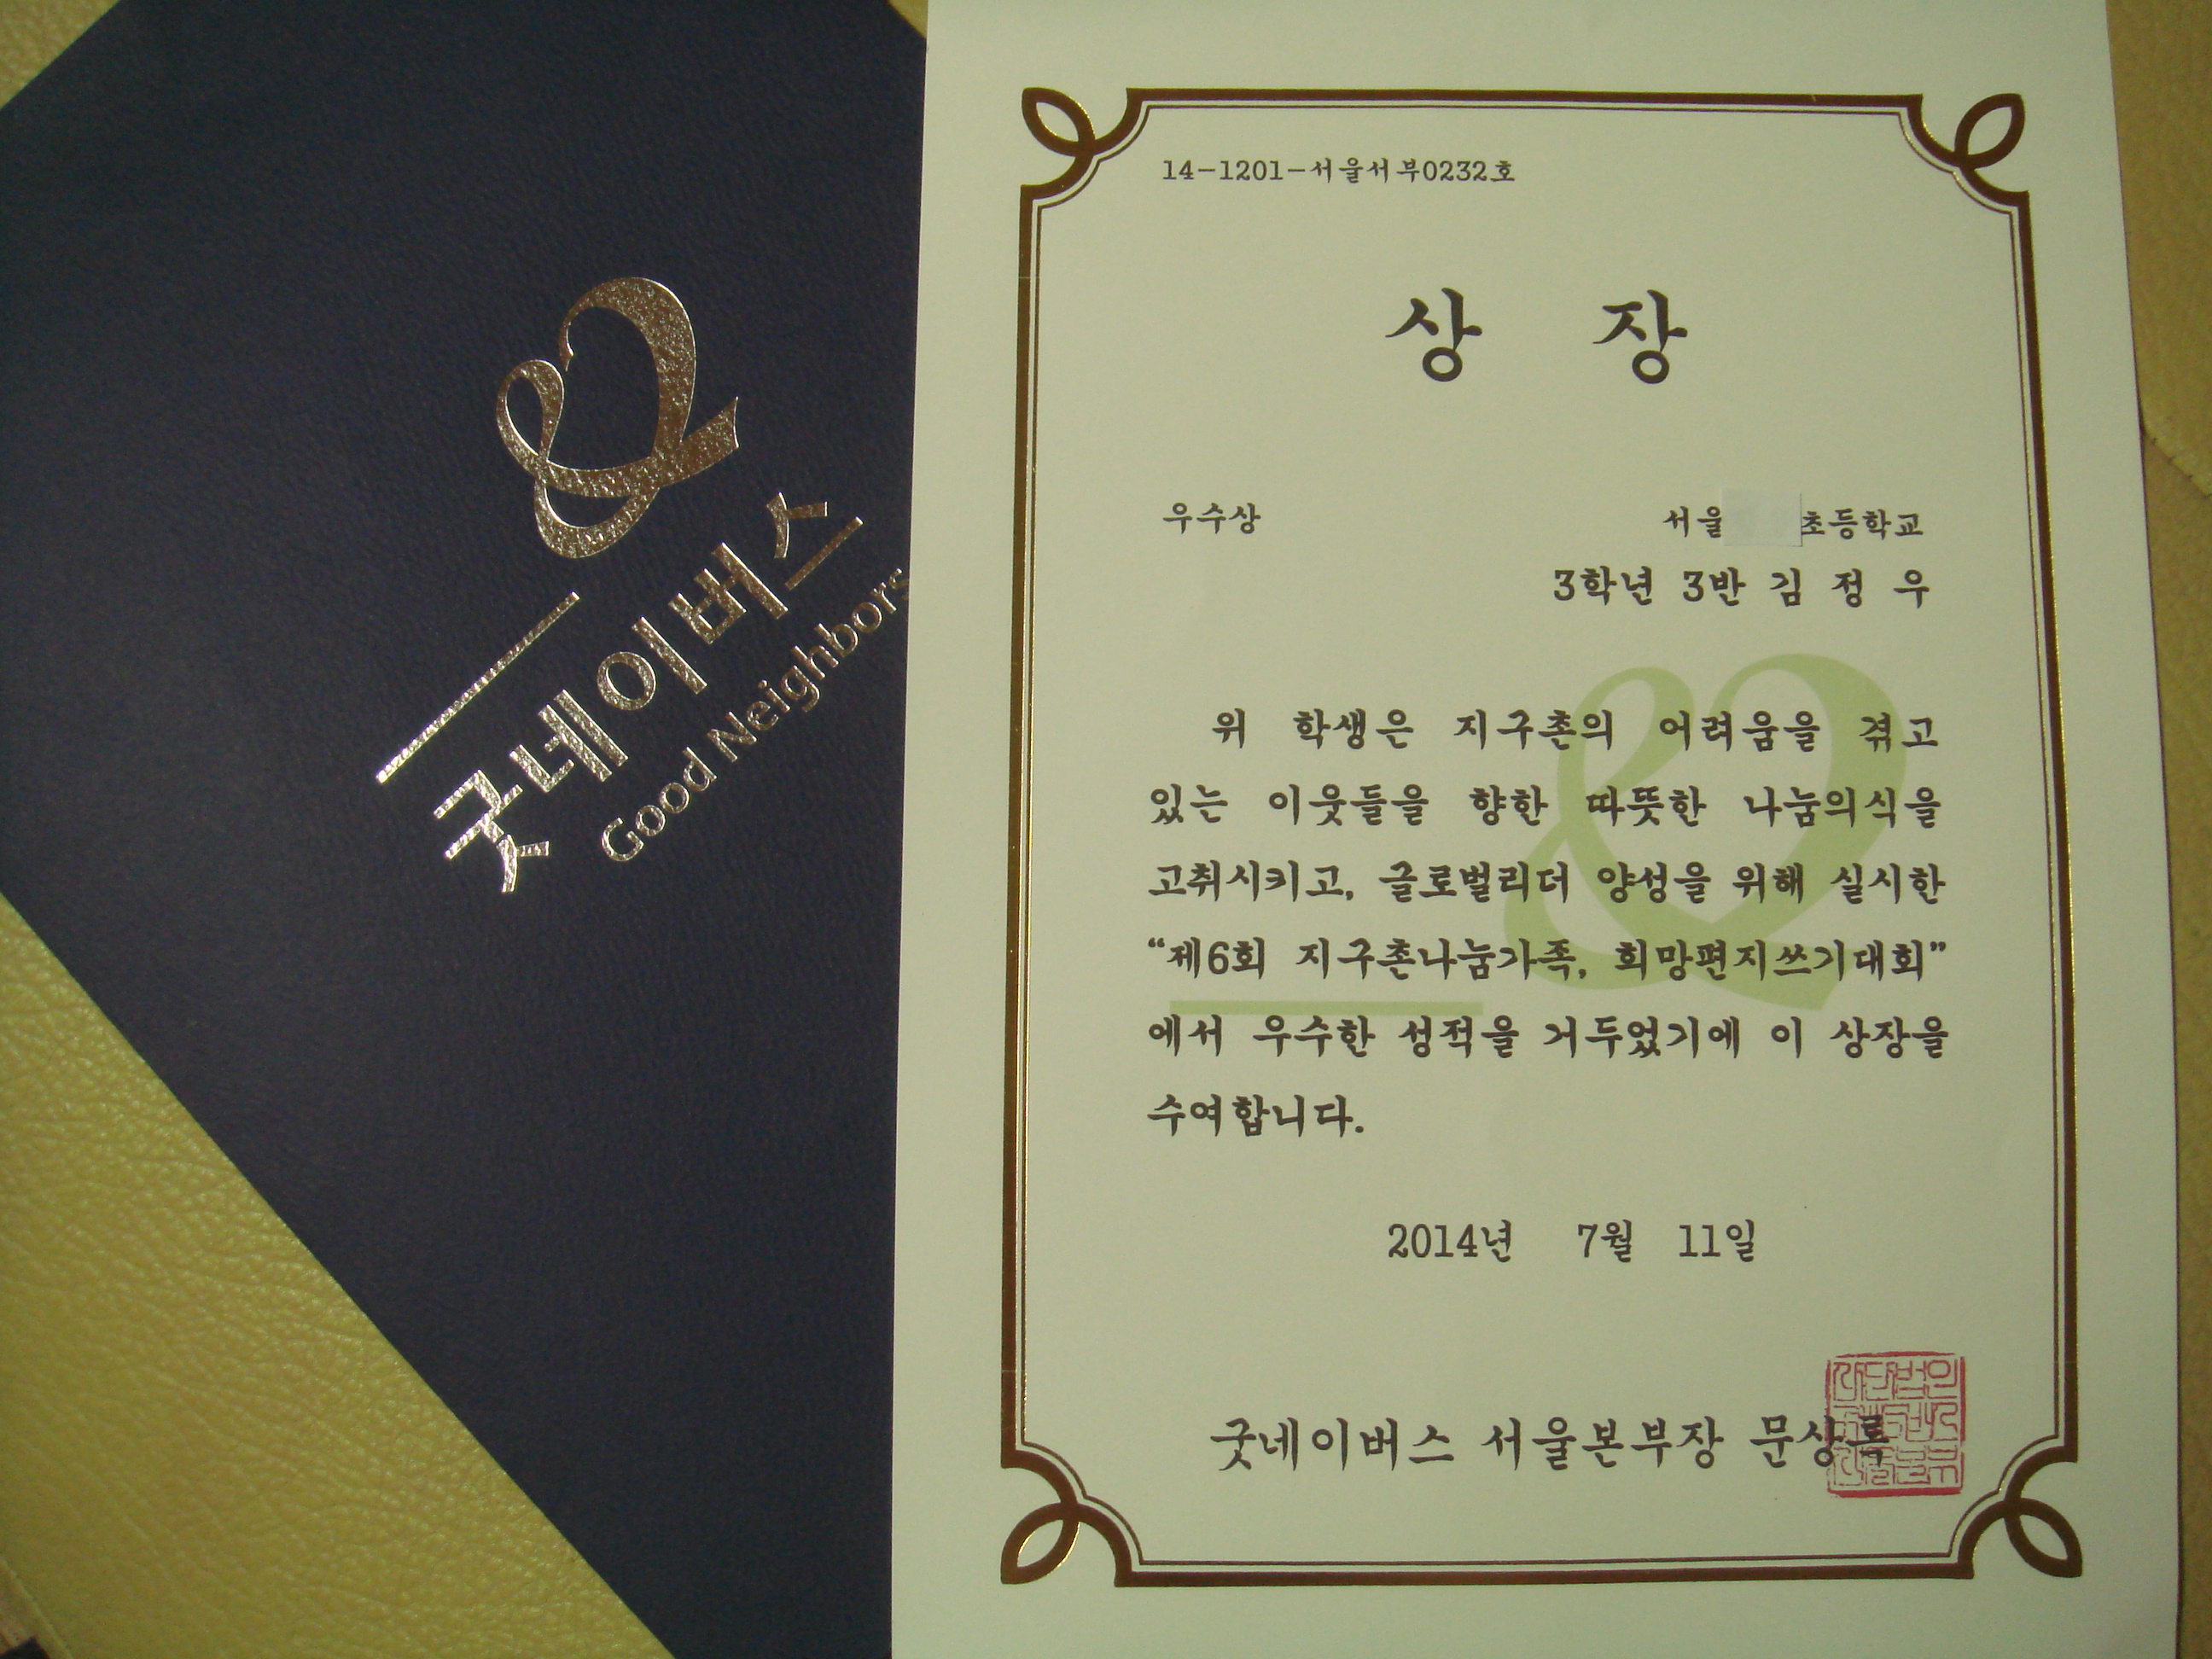 굿네이버스
Good Neighbors
14-1201-서울서부0232호
상 장
우수상
서울 초등학교
3학년 3반 김 정 우
위 학생은 지구촌의 어려움을 겪고
있는 이웃들을 향한 따뜻한 나눔의식을
고취시키고, 글로벌리더 양성을 위해 실시한
“제6회 지구촌나눔가족, 희망편지쓰기대회”
에서 우수한 성적을 거두었기에 이 상장을
수여합니다.
2014년 7월 11일
굿네이버스 서울본부장 문상록